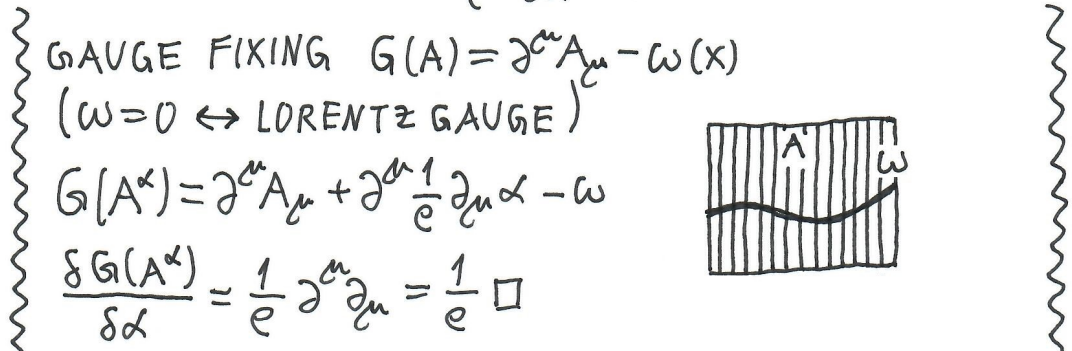 GAUGE FIXING G(A) = ∂^μ A_μ − ω(x)
(ω=0 ↔ LORENTZ GAUGE)
G(A^α) = ∂^μ A_μ + ∂^μ 1/e ∂_μ α − ω
δG(A^α)/δα = 1/e ∂^μ ∂_μ = 1/e □
A
ω